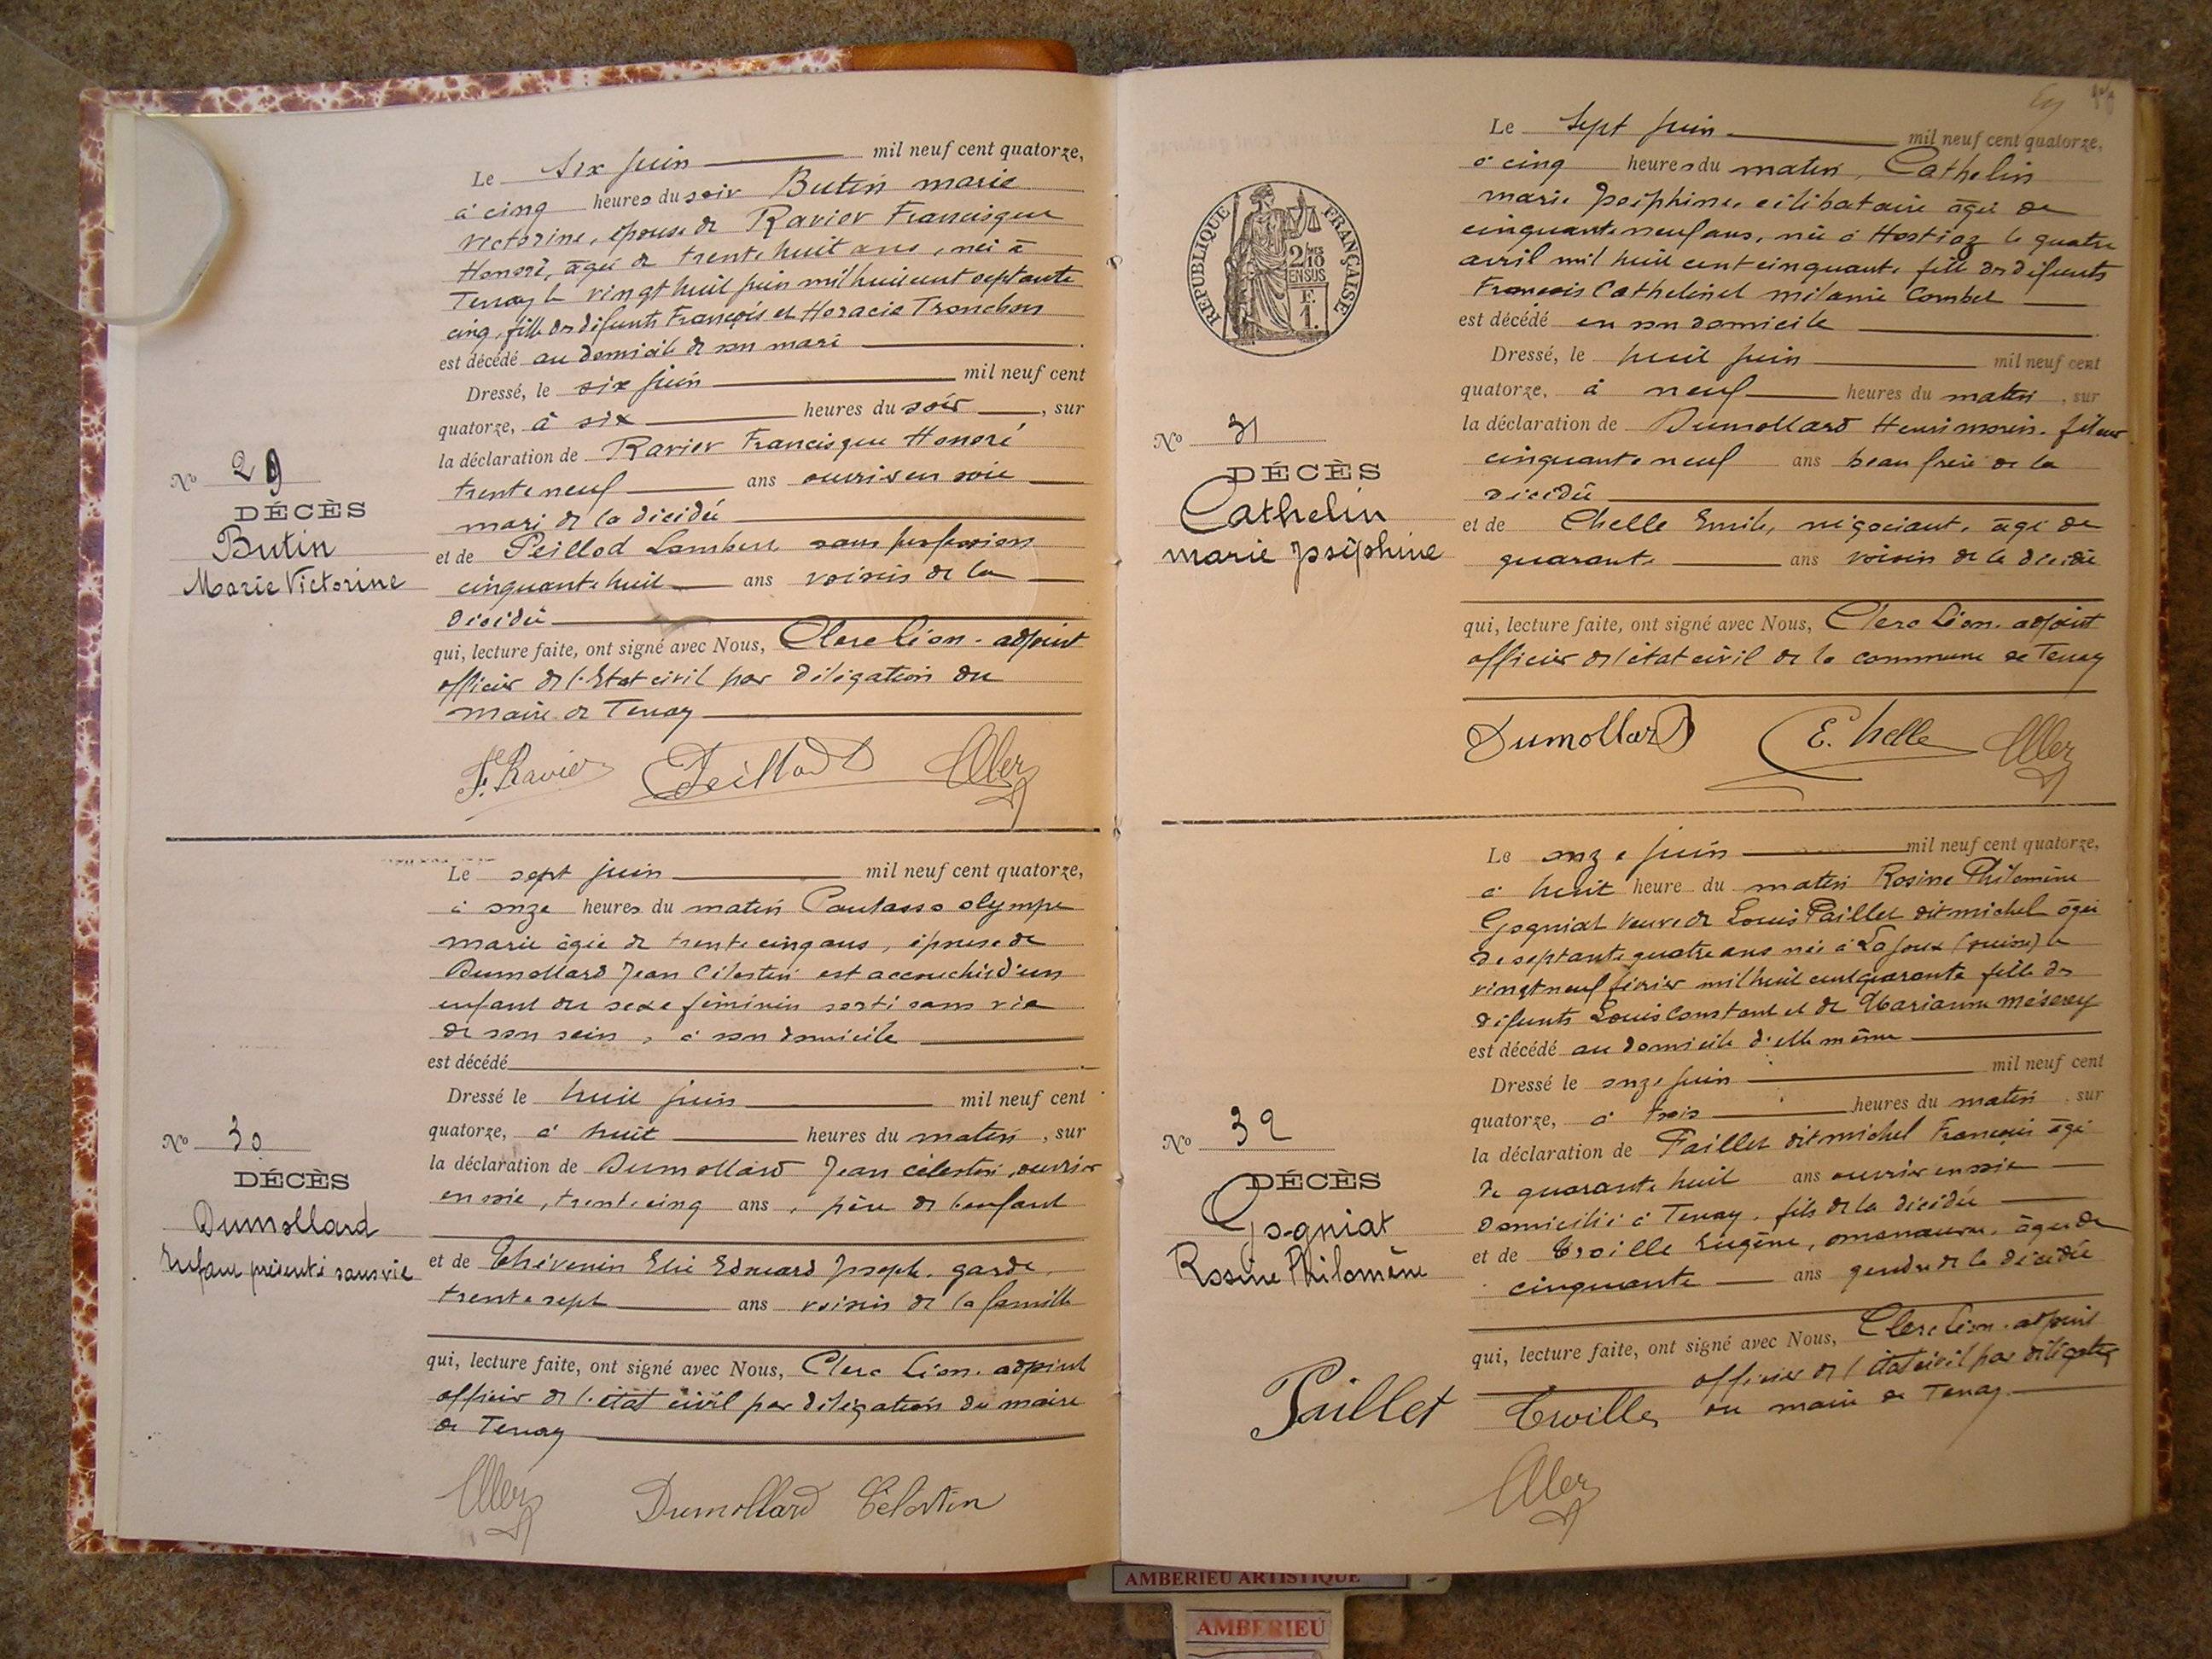 Le six juin mil neuf cent quatorze,
à cinq heures du soir Butin marie
victorine, épouse de Ravier Francisque
Honoré, âgée de trente huit ans, née à
Tenay le vingt huit juin mil huit cent septante
cinq, fille des défunts François et Horacie Tronchon
est décédé au domicile de son mari
Dressé, le six juin mil neuf cent
quatorze, à six heures du soir, sur
la déclaration de Ravier Francisque Honoré
trente neuf ans ouvrier en soie
mari de la décédée
et de Peillod Lambert sans profession
cinquante huit ans voisin de la
décédée
qui, lecture faite, ont signé avec Nous, Clerc Léon. adjoint
officier de l'Etat civil par délégation du
maire de Tenay
F. Ravier Peillod
No 29
DÉCÈS
Butin
Marie Victorine
Le sept juin mil neuf cent quatorze,
à onze heures du matin Pautasso olympe
marie âgée de trente cinq ans, épouse de
Dumollard Jean Célestin est accouchée d'un
enfant du sexe féminin sorti sans vie
de son sein, à son domicile
est décédé
Dressé le huit juin mil neuf cent
quatorze, à huit heures du matin, sur
la déclaration de Dumollard Jean célestin, ouvrier
en soie, trente cinq ans, père de l'enfant
et de Thévenin Elie Edouard Joseph. garde,
trente sept ans voisin de la famille
qui, lecture faite, ont signé avec Nous, Clerc Léon. adjoint
officier de l'état civil par délégation du maire
de Tenay
Dumollard Célestin
No 30
DÉCÈS
Dumollard
Enfant présenté sans vie
Le sept juin mil neuf cent quatorze,
à cinq heures du matin, Cathelin
marie Joséphine, célibataire âgée de
cinquante neuf ans, née à Hostiaz le quatre
avril mil huit cent cinquante fille des défunts
François Cathelin et mélanie Combet
est décédé en son domicile
Dressé, le huit juin mil neuf cent
quatorze, à neuf heures du matin, sur
la déclaration de Dumollard Henri fileur
cinquante neuf ans beau frère de la
décédée
et de Chelle Emile, négociant, âgé de
quarante ans voisin de la décédée
qui, lecture faite, ont signé avec Nous, Clerc Léon. adjoint
officier de l'état civil de la commune de Tenay
Dumollard E. Chelle
RÉPUBLIQUE FRANÇAISE
2/10 EN SUS
F.
1.
No 31
DÉCÈS
Cathelin
marie Joséphine
Le onze juin mil neuf cent quatorze,
à huit heure du matin Rosine Philomène
Gogniat veuve de Louis Paillet dit michel âgée
de septante quatre ans née à Lajoux (suisse) le
vingt neuf février mil huit cent quarante fille des
défunts Louis Constant et de Marianne
est décédé au domicile d'elle même
Dressé le onze juin mil neuf cent
quatorze, à trois heures du matin, sur
la déclaration de Paillet dit michel François âgé
de quarante huit ans ouvrier en soie
domicilié à Tenay, fils de la décédée
et de Eugène, âgé de
cinquante ans gendre de la décédée
qui, lecture faite, ont signé avec Nous, Clerc Léon. adjoint
officier de l'état civil par délégation
du maire de Tenay
Paillet
No 32
DÉCÈS
Gogniat
Rosine Philomène
AMBERIEU ARTISTIQUE
AMBERIEU